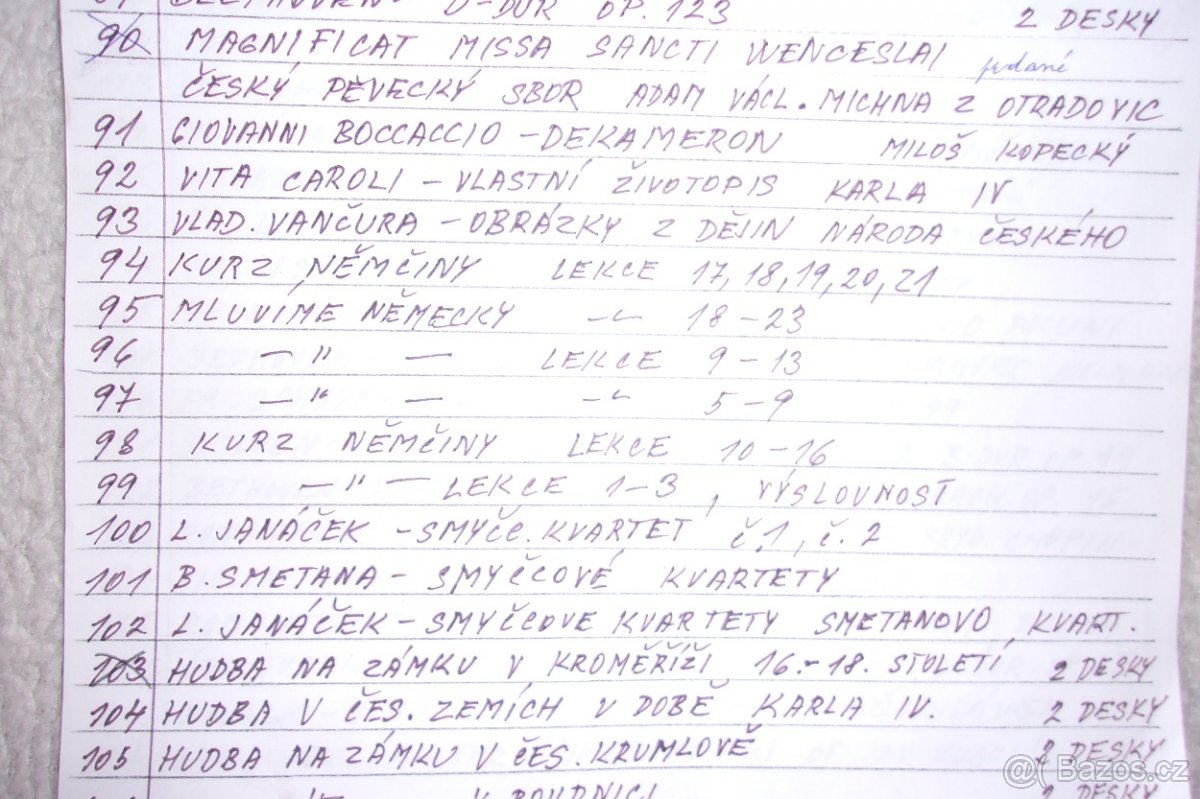 D-DUR OP. 123 2 DESKY
90 MAGNIFICAT MISSA SANCTI WENCESLAI prodané
ČESKÝ PĚVECKÝ SBOR ADAM VÁCL. MICHNA Z OTRADOVIC
91 GIOVANNI BOCCACCIO - DEKAMERON MILOŠ KOPECKÝ
92 VITA CAROLI - VLASTNÍ ŽIVOTOPIS KARLA IV
93 VLAD. VANČURA - OBRÁZKY Z DĚJIN NÁRODA ČESKÉHO
94 KURZ NĚMČINY LEKCE 17, 18, 19, 20, 21
95 MLUVÍME NĚMECKY -"- 18-23
96 -"- LEKCE 9-13
97 -"- -"- 5-9
98 KURZ NĚMČINY LEKCE 10-16
99 -"- LEKCE 1-3, VÝSLOVNOST
100 L. JANÁČEK - SMYČC. KVARTET Č.1, Č.2
101 B. SMETANA - SMYČCOVÉ KVARTETY
102 L. JANÁČEK - SMYČCOVE KVARTETY SMETANOVO KVART.
103 HUDBA NA ZÁMKU V KROMĚŘÍŽI 16.-18. STOLETÍ 2 DESKY
104 HUDBA V ČES. ZEMÍCH V DOBĚ KARLA IV. 2 DESKY
105 HUDBA NA ZÁMKU V ČES. KRUMLOVĚ 2 DESKY
V ROUDNICI 2 DESKY
Bazos.cz